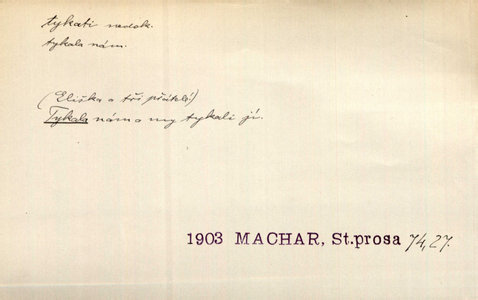 tykati nedok.
tykala nám.
(Eliška a tři přátelé)
Tykala nám a my tykali jí.
1903 MACHAR, St.prosa 74,27.